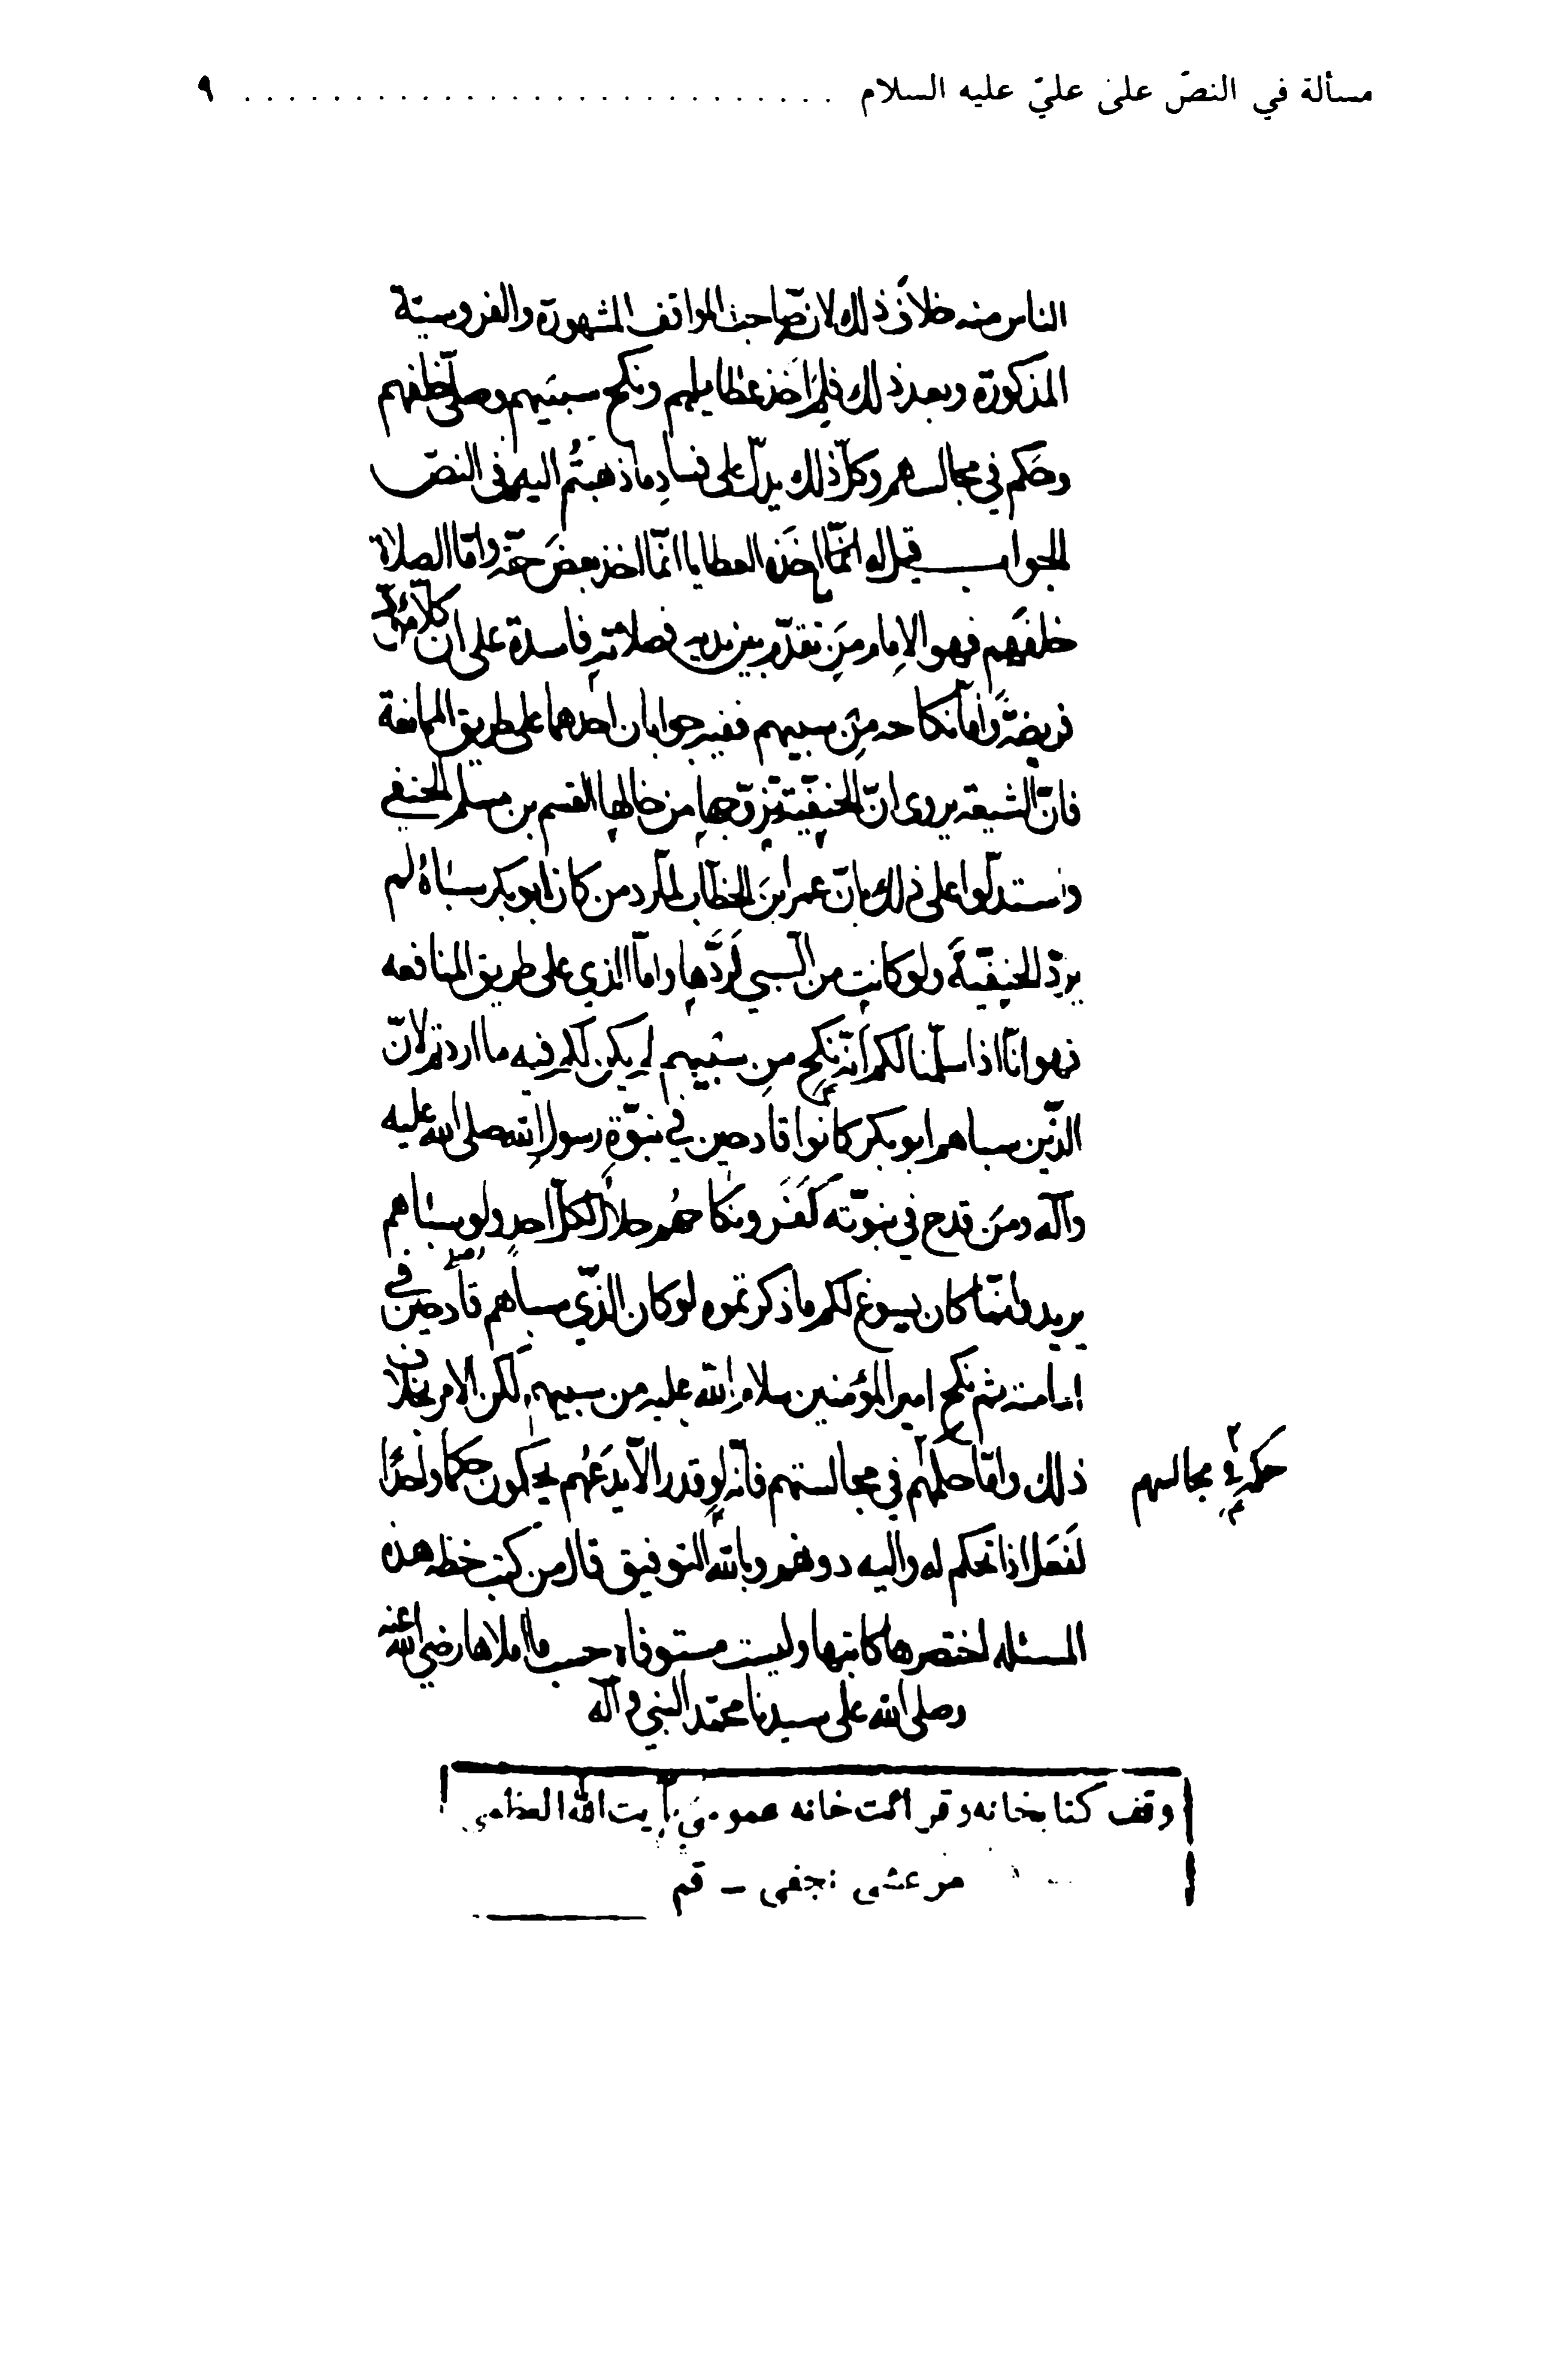 مسألة في النصّ علىٰ عليّ عليه السلام ........................... ٩
الناس منه خلاف ذلك لانه صاحب المواقف المشهورة والفروسيّة
المذكورة وبعد ذلك فلم اَخذ عطاياهم ونكح سبيَهم وصلّى خلفهم
وحَكم في مجالسهم وكلّ ذلك يدلّ على فساد ما ذهبتُم اليه في النصّ
الجواب قيل له امّا اخذه العطايا انّما اخذ بعضَ حقّه وامّا الصلاة
خلفَهم فهو الإمام من تقدّم بين يديه فصلاته فاسدة على ان كلّا مؤدّ
فريضةً وامّا نكاحه مِن سبيهم ففيه جوابان احدهما على طريق الممانعة
فانّ الشيعة يروى انّ الحنفيّة تزوّجها من خالها القسم بن مسلم الحنفي
واستدلّوا على ذلك بانّ عمر ابن الخطّاب لمّا ردّ من كان ابو بكر سباهُ لم
يردّ الحنفيّةَ ولو كانت من السبي لَردَّها وامّا الذي على طريق المتابعه
فهو انّا اذا سلّمنا لكم انّه نكح من سبيهم لم يكن لكم فيه ما اردتم لانّ
الذّين سباهم ابو بكر كانوا قادحين في نبوّة رسول الله صلى الله عليه
وآله ومَن قدح في نبوّته كَفَر ونكاحهُم حلالٌ لكلّ احدٍ ولو سباهم
يزيد وانمّا كان يسوغ لكم ما ذكرتموه لو كان الذّي سباهم قادحين في
امامته ثم نكح امير المؤمنين سلام الله عليه من سبيهم لكن الامر بخلاف
ذلك وامّا حكمهُ في مجالستهم فانّه لو قدر الّا يدَعهُم يحكمون حكما واحدًا
لفَعَل اذ الحكم له واليه دونهم وبالله التوفيق قال من كتب خطه هذه
المسئله اختصرها كاتبها وليست مستوفاه حسب ما املاها رضي الله عنه
وصلى الله على سيدنا محمّد النبي وآله
حكمه في مجالسهم
وقف كتابخانه و قرائت خانه عمومى آيت الله العظمى
مرعشى نجفى – قم